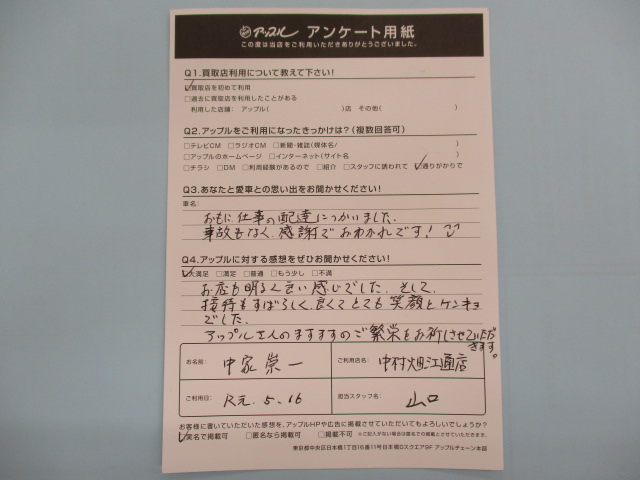 アップル アンケート用紙
この度は当店をご利用いただきありがとうございました。
Q1.買取店利用について教えて下さい!
☑買取店を初めて利用
□過去に買取店を利用したことがある
利用した店舗: アップル( )店 その他( )
Q2.アップルをご利用になったきっかけは?(複数回答可)
□テレビCM □ラジオCM □新聞・雑誌(媒体名/ )
□アップルのホームページ □インターネット(サイト名 )
□チラシ □DM □利用経験があるので □紹介 □スタッフに誘われて ☑通りがかりで
Q3.あなたと愛車との思い出をお聞かせください!
車名:
おもに仕事の配達につかいました、
事故もなく、感謝でおわかれです!
Q4.アップルに対する感想をぜひお聞かせください!
☑大満足 □満足 □普通 □もう少し □不満
お店も明るく良い感じでした、そして、
接待もすばらしく、良くてとても笑顔とケンキョ
でした、
アップルさんのますますのご繁栄をお祈しさせていただ
きます。
お名前: 中家崇一 ご利用店名: 中村畑江通店
ご利用日: R元.5.16 担当スタッフ名: 山口
お客様に書いていただいた感想を、アップルHPや広告に掲載させていただいてもよろしいでしょうか?
☑実名で掲載可 □匿名なら掲載可 □掲載不可 ※ご記入がない場合は匿名での掲載とさせていただきます。
東京都中央区日本橋1丁目16番11号日本橋Dスクエア9F アップルチェーン本部